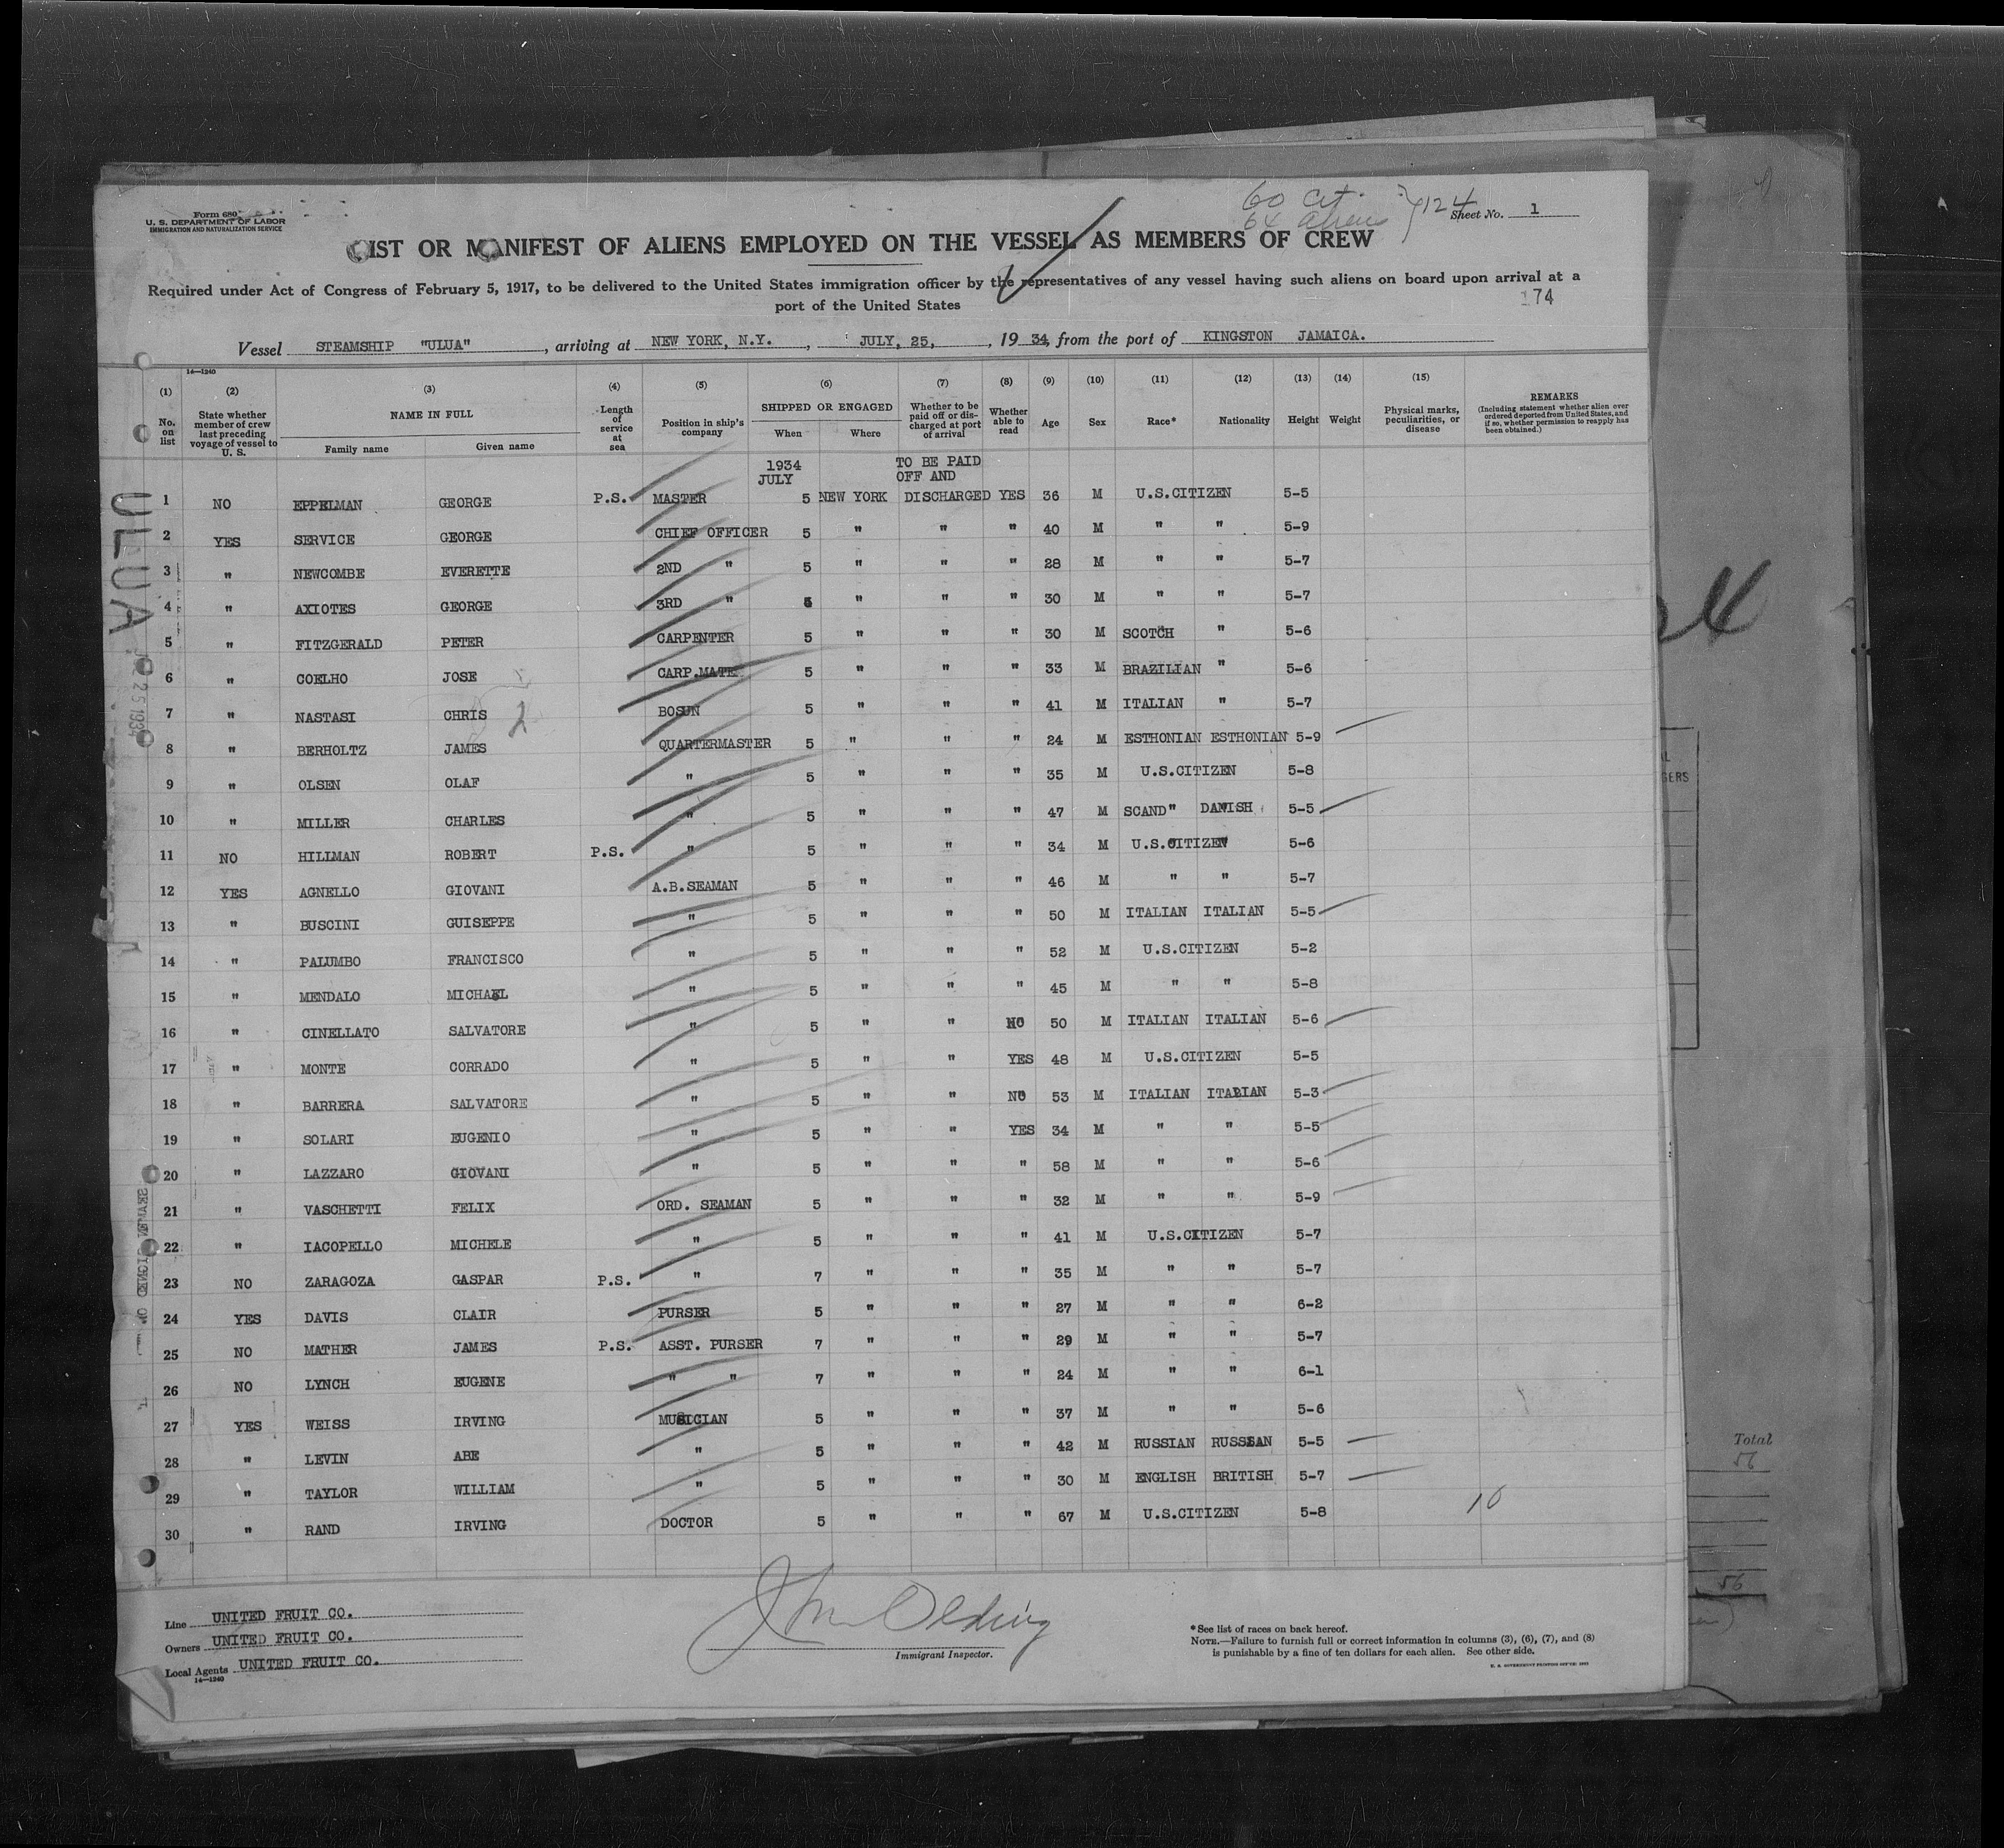 Form 680
U. S. DEPARTMENT OF LABOR
IMMIGRATION AND NATURALIZATION SERVICE
60 Cit.
64 aliens } 124
Sheet No. 1
LIST OR MANIFEST OF ALIENS EMPLOYED ON THE VESSEL AS MEMBERS OF CREW
Required under Act of Congress of February 5, 1917, to be delivered to the United States immigration officer by the representatives of any vessel having such aliens on board upon arrival at a
port of the United States
174
Vessel STEAMSHIP "ULUA", arriving at NEW YORK, N.Y., JULY, 25, 1934, from the port of KINGSTON JAMAICA.
14—1240
(1) (2) (3) (4) (5) (6) (7) (8) (9) (10) (11) (12) (13) (14) (15)
No. on list
State whether member of crew last preceding voyage of vessel to U. S.
NAME IN FULL
Family name Given name
Length of service at sea
Position in ship's company
SHIPPED OR ENGAGED
When Where
Whether to be paid off or discharged at port of arrival
Whether able to read
Age Sex Race* Nationality Height Weight
Physical marks, peculiarities, or disease
REMARKS
(Including statement whether alien ever ordered deported from United States, and if so, whether permission to reapply has been obtained.)
1934 TO BE PAID
JULY OFF AND
1 NO EPPELMAN GEORGE P.S. MASTER 5 NEW YORK DISCHARGED YES 36 M U.S.CITIZEN 5-5
2 YES SERVICE GEORGE CHIEF OFFICER 5 " " " 40 M " " 5-9
3 " NEWCOMBE EVERETTE 2ND " 5 " " " 28 M " " 5-7
4 " AXIOTES GEORGE 3RD " 5 " " " 30 M " " 5-7
5 " FITZGERALD PETER CARPENTER 5 " " " 30 M SCOTCH " 5-6
6 " COELHO JOSE CARP.MATE 5 " " " 33 M BRAZILIAN " 5-6
7 " NASTASI CHRIS 2 BOSUN 5 " " " 41 M ITALIAN " 5-7
8 " BERHOLTZ JAMES QUARTERMASTER 5 " " " 24 M ESTHONIAN ESTHONIAN 5-9
9 " OLSEN OLAF " 5 " " " 35 M U.S.CITIZEN 5-8
10 " MILLER CHARLES " 5 " " " 47 M SCAND" DANISH 5-5
11 NO HILLMAN ROBERT P.S. " 5 " " " 34 M U.S.CITIZEN 5-6
12 YES AGNELLO GIOVANI A.B.SEAMAN 5 " " " 46 M " " 5-7
13 " BUSCINI GUISEPPE " 5 " " " 50 M ITALIAN ITALIAN 5-5
14 " PALUMBO FRANCISCO " 5 " " " 52 M U.S.CITIZEN 5-2
15 " MENDALO MICHAEL " 5 " " " 45 M " " 5-8
16 " CINELLATO SALVATORE " 5 " " NO 50 M ITALIAN ITALIAN 5-6
17 " MONTE CORRADO " 5 " " YES 48 M U.S.CITIZEN 5-5
18 " BARRERA SALVATORE " 5 " " NO 53 M ITALIAN ITALIAN 5-3
19 " SOLARI EUGENIO " 5 " " YES 34 M " " 5-5
20 " LAZZARO GIOVANI " 5 " " " 58 M " " 5-6
21 " VASCHETTI FELIX ORD. SEAMAN 5 " " " 32 M " " 5-9
22 " IACOPELLO MICHELE " 5 " " " 41 M U.S.CITIZEN 5-7
23 NO ZARAGOZA GASPAR P.S. " 7 " " " 35 M " " 5-7
24 YES DAVIS CLAIR PURSER 5 " " " 27 M " " 6-2
25 NO MATHER JAMES P.S. ASST. PURSER 7 " " " 29 M " " 5-7
26 NO LYNCH EUGENE " " 7 " " " 24 M " " 6-1
27 YES WEISS IRVING MUSICIAN 5 " " " 37 M " " 5-6
28 " LEVIN ABE " 5 " " " 42 M RUSSIAN RUSSIAN 5-5
29 " TAYLOR WILLIAM " 5 " " " 30 M ENGLISH BRITISH 5-7
30 " RAND IRVING DOCTOR 5 " " " 67 M U.S.CITIZEN 5-8
10
ULUA
25 1934
Line UNITED FRUIT CO.
Owners UNITED FRUIT CO.
Local Agents UNITED FRUIT CO.
14—1240
Immigrant Inspector.
*See list of races on back hereof.
NOTE.—Failure to furnish full or correct information in columns (3), (6), (7), and (8)
is punishable by a fine of ten dollars for each alien. See other side.
Total
56
56